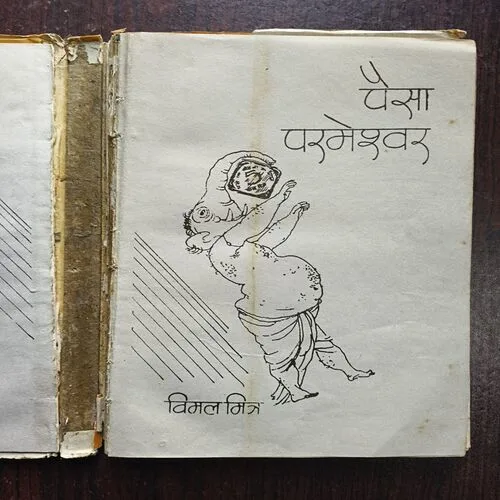 पैसा
परमेश्वर
विमल मित्र